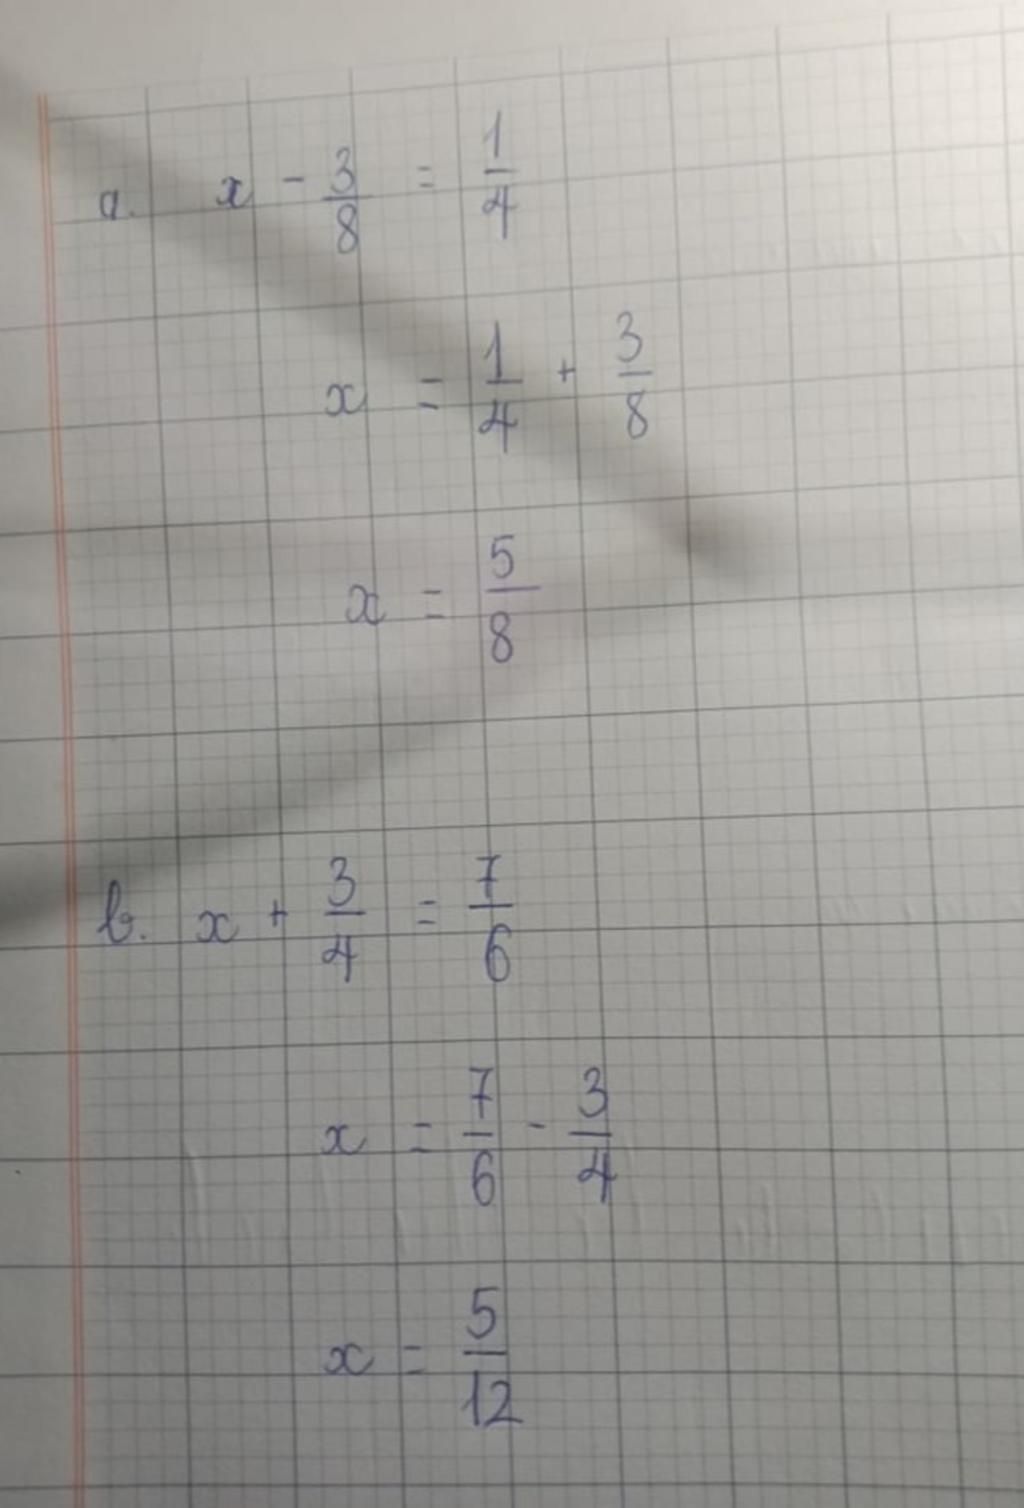 a. x - 3/8 = 1/4
x = 1/4 + 3/8
x = 5/8
b. x + 3/4 = 7/6
x = 7/6 - 3/4
x = 5/12